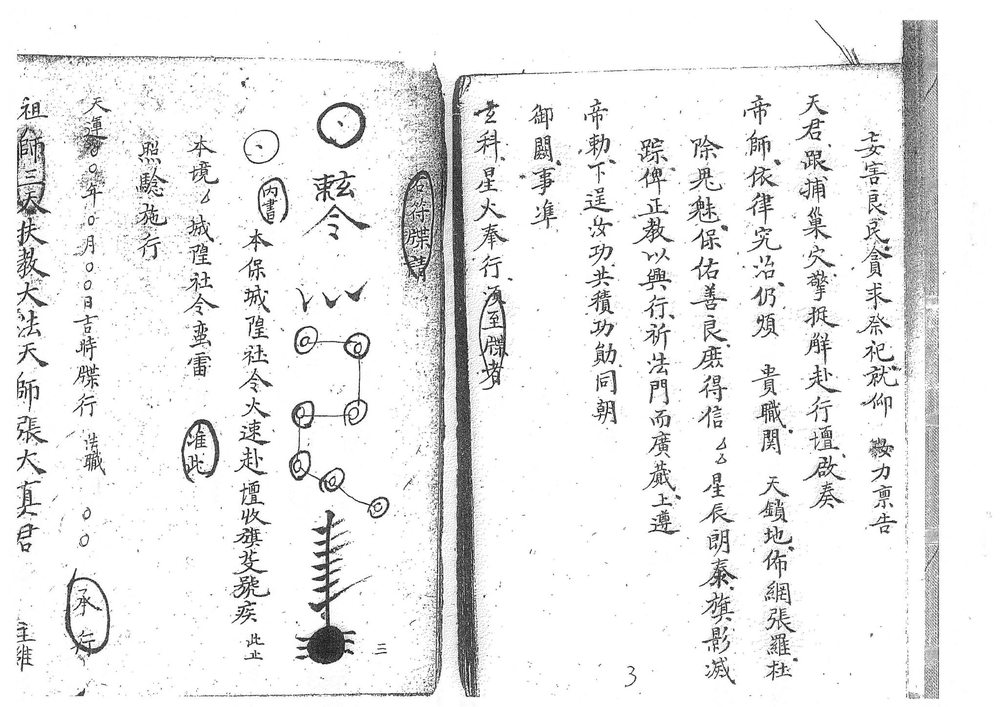 妄害良民貪求祭祀就仰 汝力稟告
天君跟捕巢穴擎捉解赴行壇啟奏
帝師依律究治仍煩 貴職関 天鎖地佈網張羅杜
除鬼魅保佑善良庶得信厶厶星辰朗泰旗影滅
踪俾正教以興行祈法門而廣蕆上遵
帝勅下逞汝功共積功勛同朝
御闕事凖
玄科星火奉行須至牒者
右符牒請
三
敕令
內書
本保城隍社令火速赴壇收旗芟號疾 此止
本境厶城隍社令蛮雷 准此
照驗施行
天運〇〇年〇月〇〇日吉時牒行 法職 〇〇 承行
祖師三天扶教大法天師張大真君 主維
3